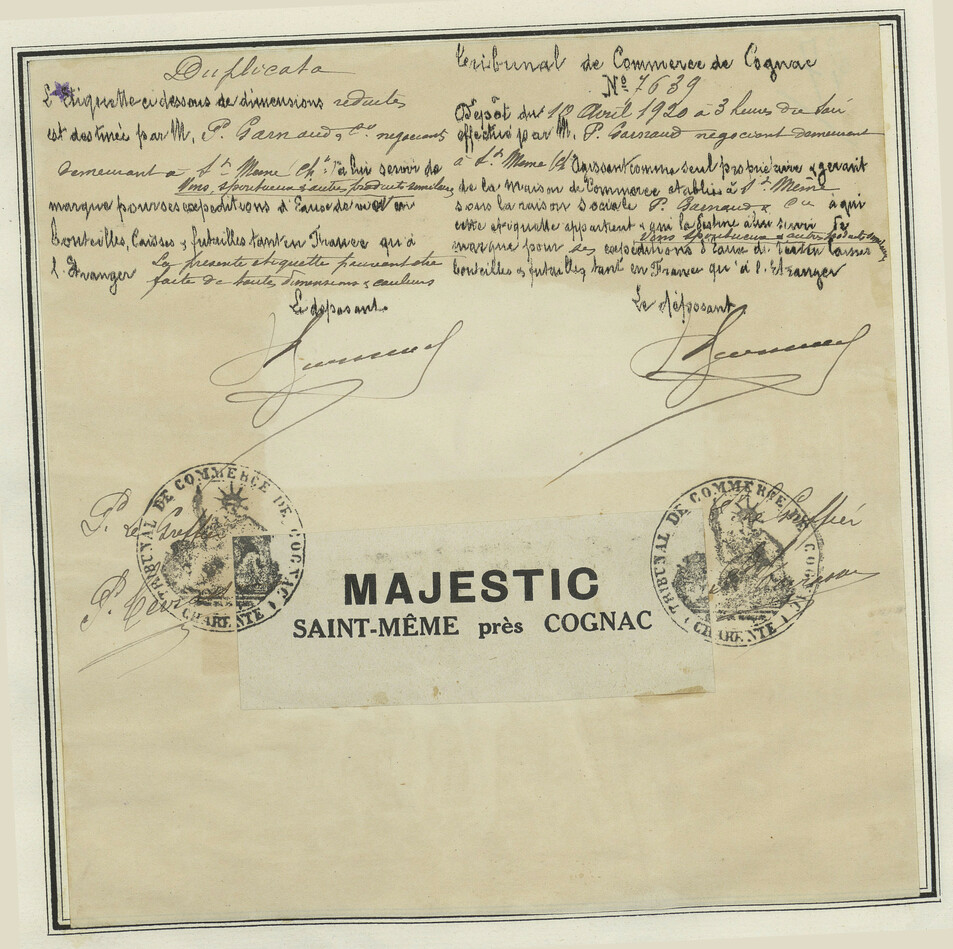 Duplicata
L'Etiquette ci dessous de dimensions réduites
est destinée par M. P. Garnaud & Cie négociant
demeurant à St Meme Chte à lui servir de
Vins, spiritueux & autres produits similaires
marque pour ses expéditions d'Eaux de vie en
bouteilles, Caisses & futailles tant en France qu'à
l'Etranger La présente étiquette pouvant être
faite de toutes dimensions & couleurs
Le déposant.
Tribunal de Commerce de Cognac
No 7639
Dépôt du 10 Avril 1920 à 3 heures du soir
effectué par M. P. Garnaud négociant demeurant
à St Meme Agissant comme seul propriétaire & gérant
de la maison de Commerce établie à St Même
sous la raison sociale P. Garnaud & Cie à qui
cette étiquette appartient & qui la destine à lui servir de
Vins spiritueux & autres produits similaires
marque pour ses expéditions d'Eaux de vie en Caisses
bouteilles & futailles, tant en France qu'à l'Etranger
Le déposant.
P. le Greffier
TRIBUNAL DE COMMERCE DE COGNAC
(CHARENTE)
MAJESTIC
SAINT-MÊME près COGNAC
P. le Greffier
TRIBUNAL DE COMMERCE DE COGNAC
(CHARENTE)